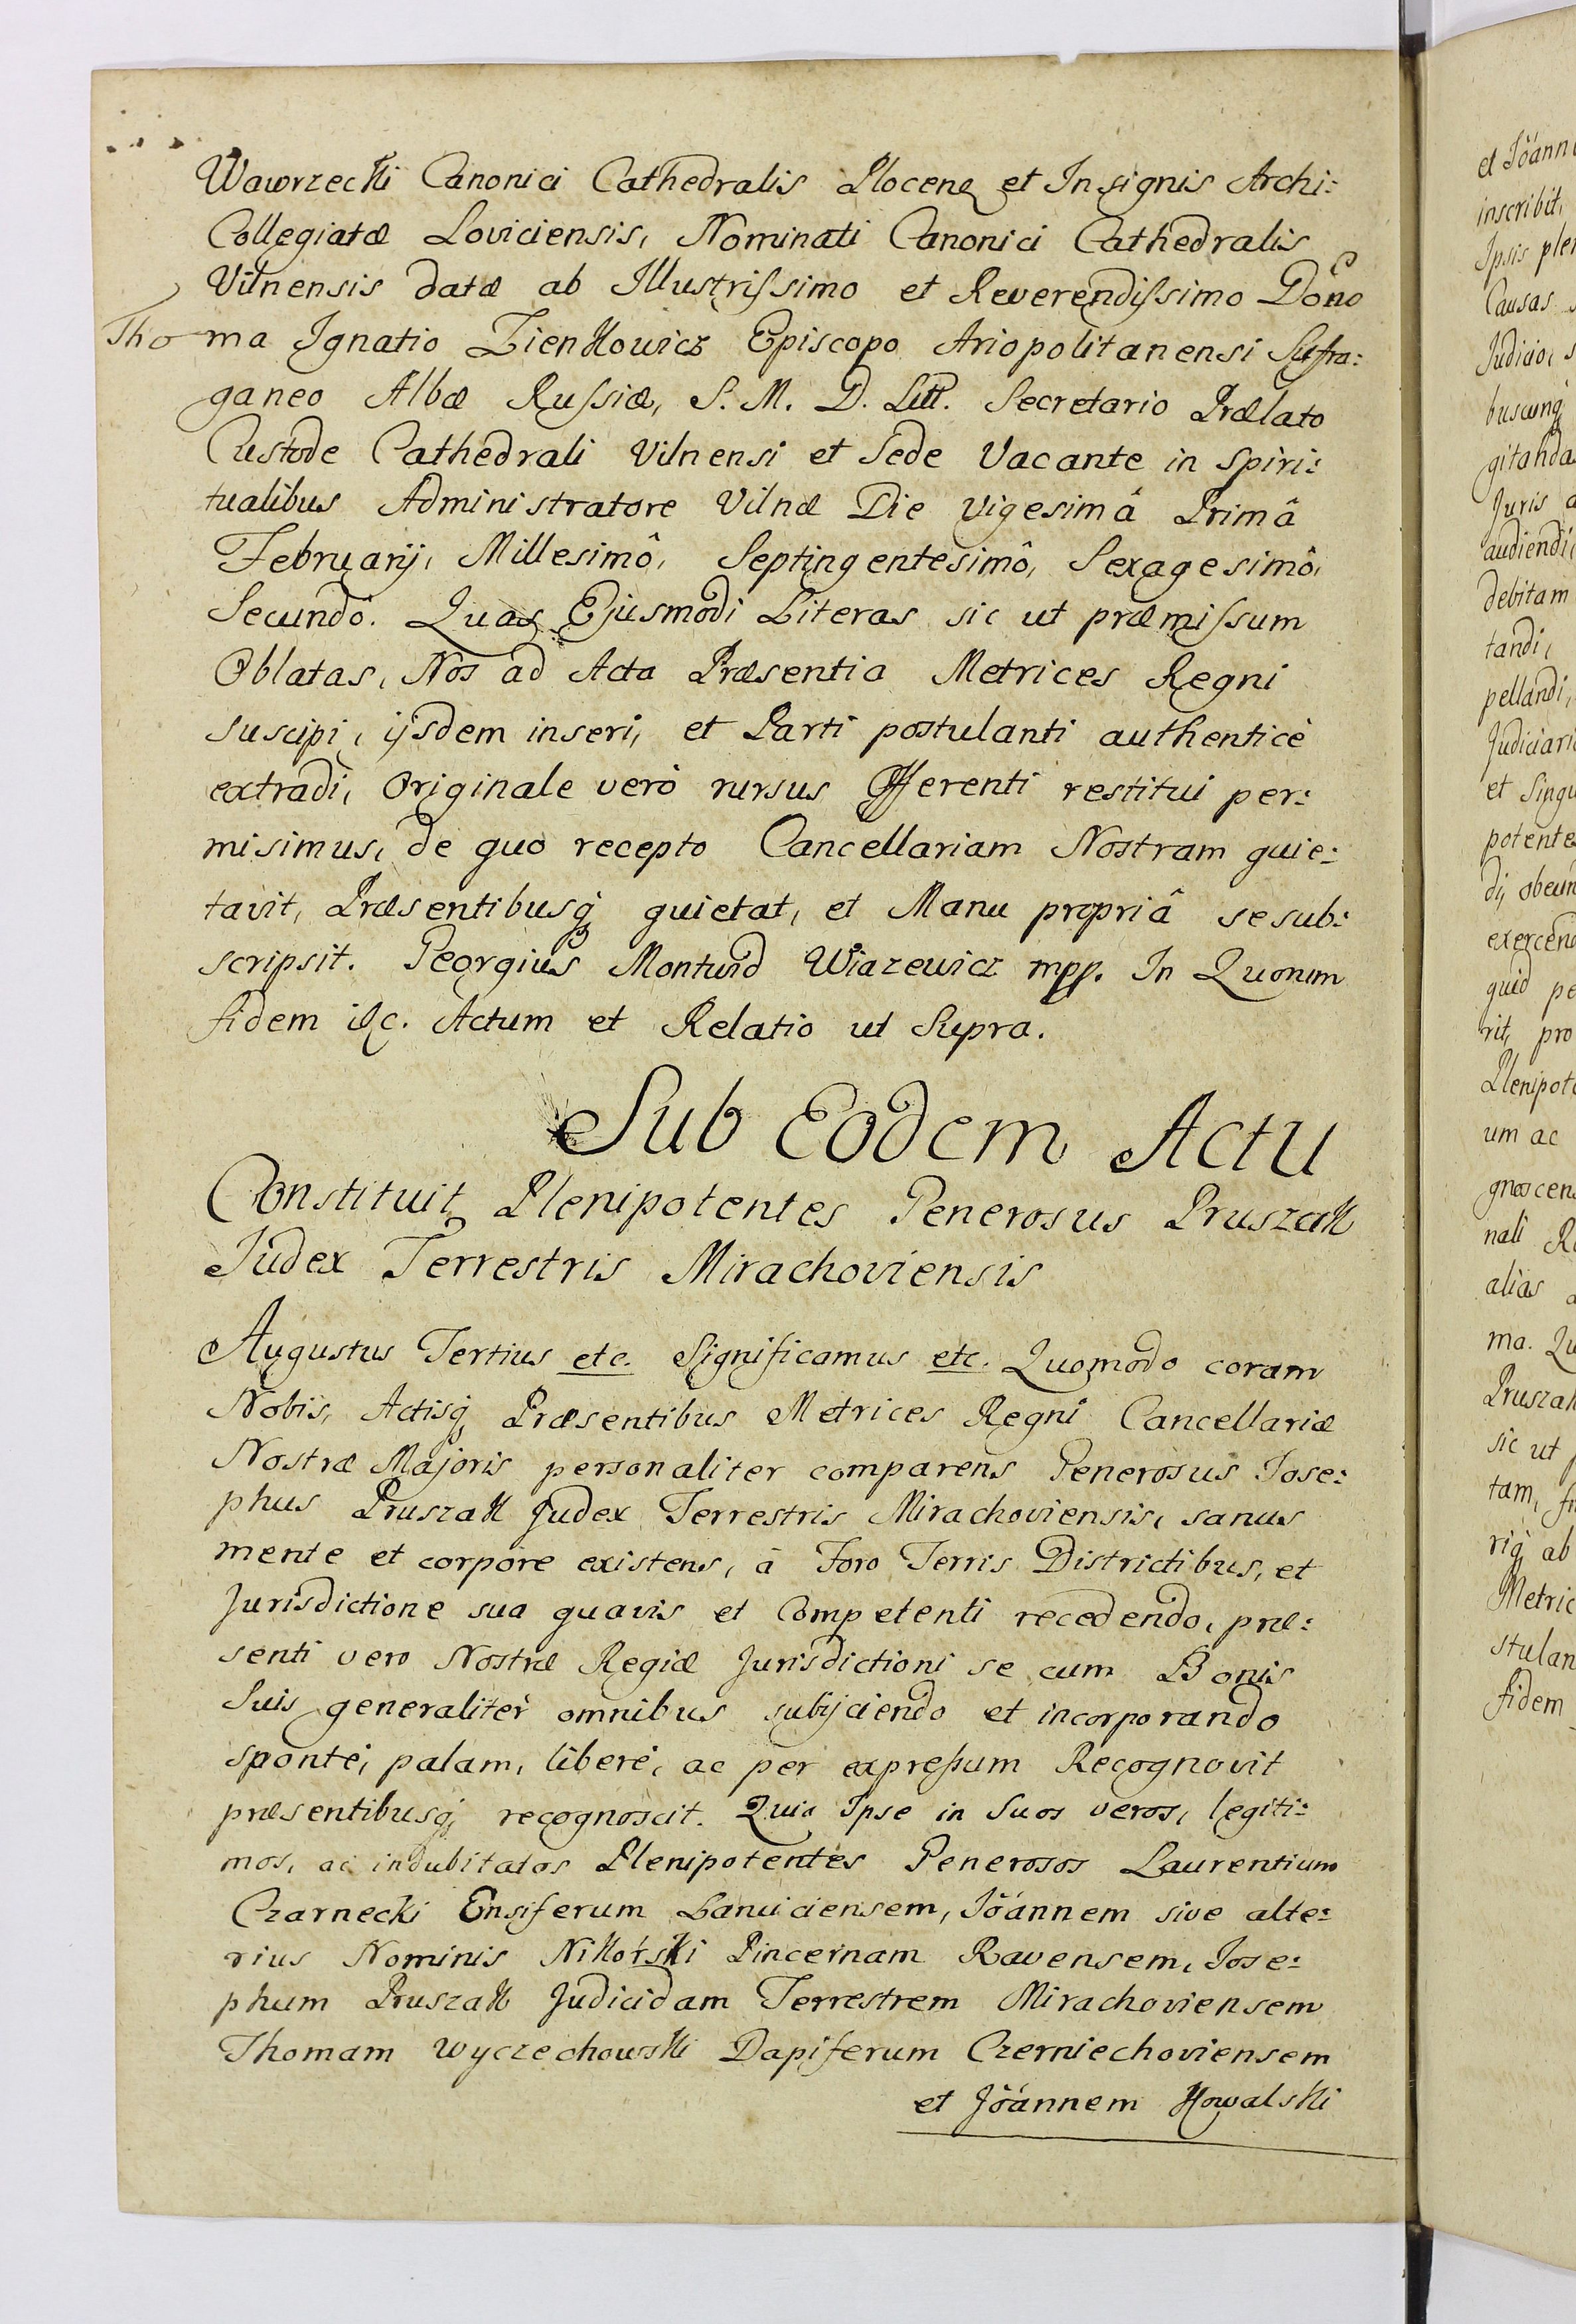 Wawrzecki Canonici Cathedralis Plocenę et Insignis Archi:
Collegiatæ Loviciensis, Nominati Canonici Cathedralis
Vilnensis datæ ab Illustrissimo et Reverendissimo Dōno
Tho ma Ignatio Zienkowicz Episcopo Ariopolitanensi Sufra:
ganeo Albæ Russiæ, S. M. D. Litt. Secretario Prælato
Custode Cathedrali Vilnensi et Sede Vacante in Spiri:
tualibus Administratore Vilnæ Die Vigesimâ Primâ
Februarij, Millesimô, Septingentesimô, Sexagesimô,
Secundô. Quas Ejusmodi Literas sic ut præmissum
Oblatas, Nos ad Acta Præsentia Metrices Regni
suscipi, ijsdem inseri, et Parti postulanti authenticè
extradi, Originale verò rursus Offerenti restitui per:
misimus, de quo recepto Cancellariam Nostram quie:
tavit, Præsentibusq̨ quietat, et Manu propriâ se sub:
scripsit. Georgius Montwid Wiazewicz mpp. In Quorum
fidem &c. Actum et Relatio ut Supra.
Sub Eodem Actu
Constituit Plenipotentes Generosus Pruszak
Judex Terrestris Mirachoviensis
Augustus Tertius etc. Significamus etc. Quomodo coram
Nobis, Actisq̨ Præsentibus Metrices Regni Cancellariæ
Nostræ Majoris personaliter comparens Generosus Jose:
phus Pruszak Judex Terrestris Mirachoviensis, sanus
mente et corpore existens, à Foro Terris Districtibus, et
Jurisdictione sua quavis et Competenti recedendo, præ:
senti vero Nostræ Regiæ Jurisdictioni se cum Bonis
Suis generalitèr omnibus subijciendo et incorporando
spontè, palam, liberè, ac per expressum Recognovit
præsentibusq̨ recognoscit. Quia Ipse in Suos veros, legiti:
mos, ac indubitatos Plenipotentes Generosos Laurentium
Czarnecki Ensiferum Lanciciensem, Jōannem sive alte:
rius Nominis Nikorski Pincernam Ravensem, Jose:
phum Pruszak Judicidam Terrestrem Mirachoviensem
Thomam Wyczechowski Dapiferum Czerniechoviensem
et Jōannem Kowalski
et Jōann
inscribit,
Ipsis plen
Causas
Judicio, s
buscunq̨
gitanda
Juris a
audiendi
debitam
tandi,
pellandi,
Judiciari
et Singu
potente
di, obeun
exercend
quid pe
rit, pro
Plenipot
um ac
gnoscen
nali R
alias a
ma. Qu
Pruszak
sic ut p
tam,
riq̨ ab
Metric
stulan
fidem